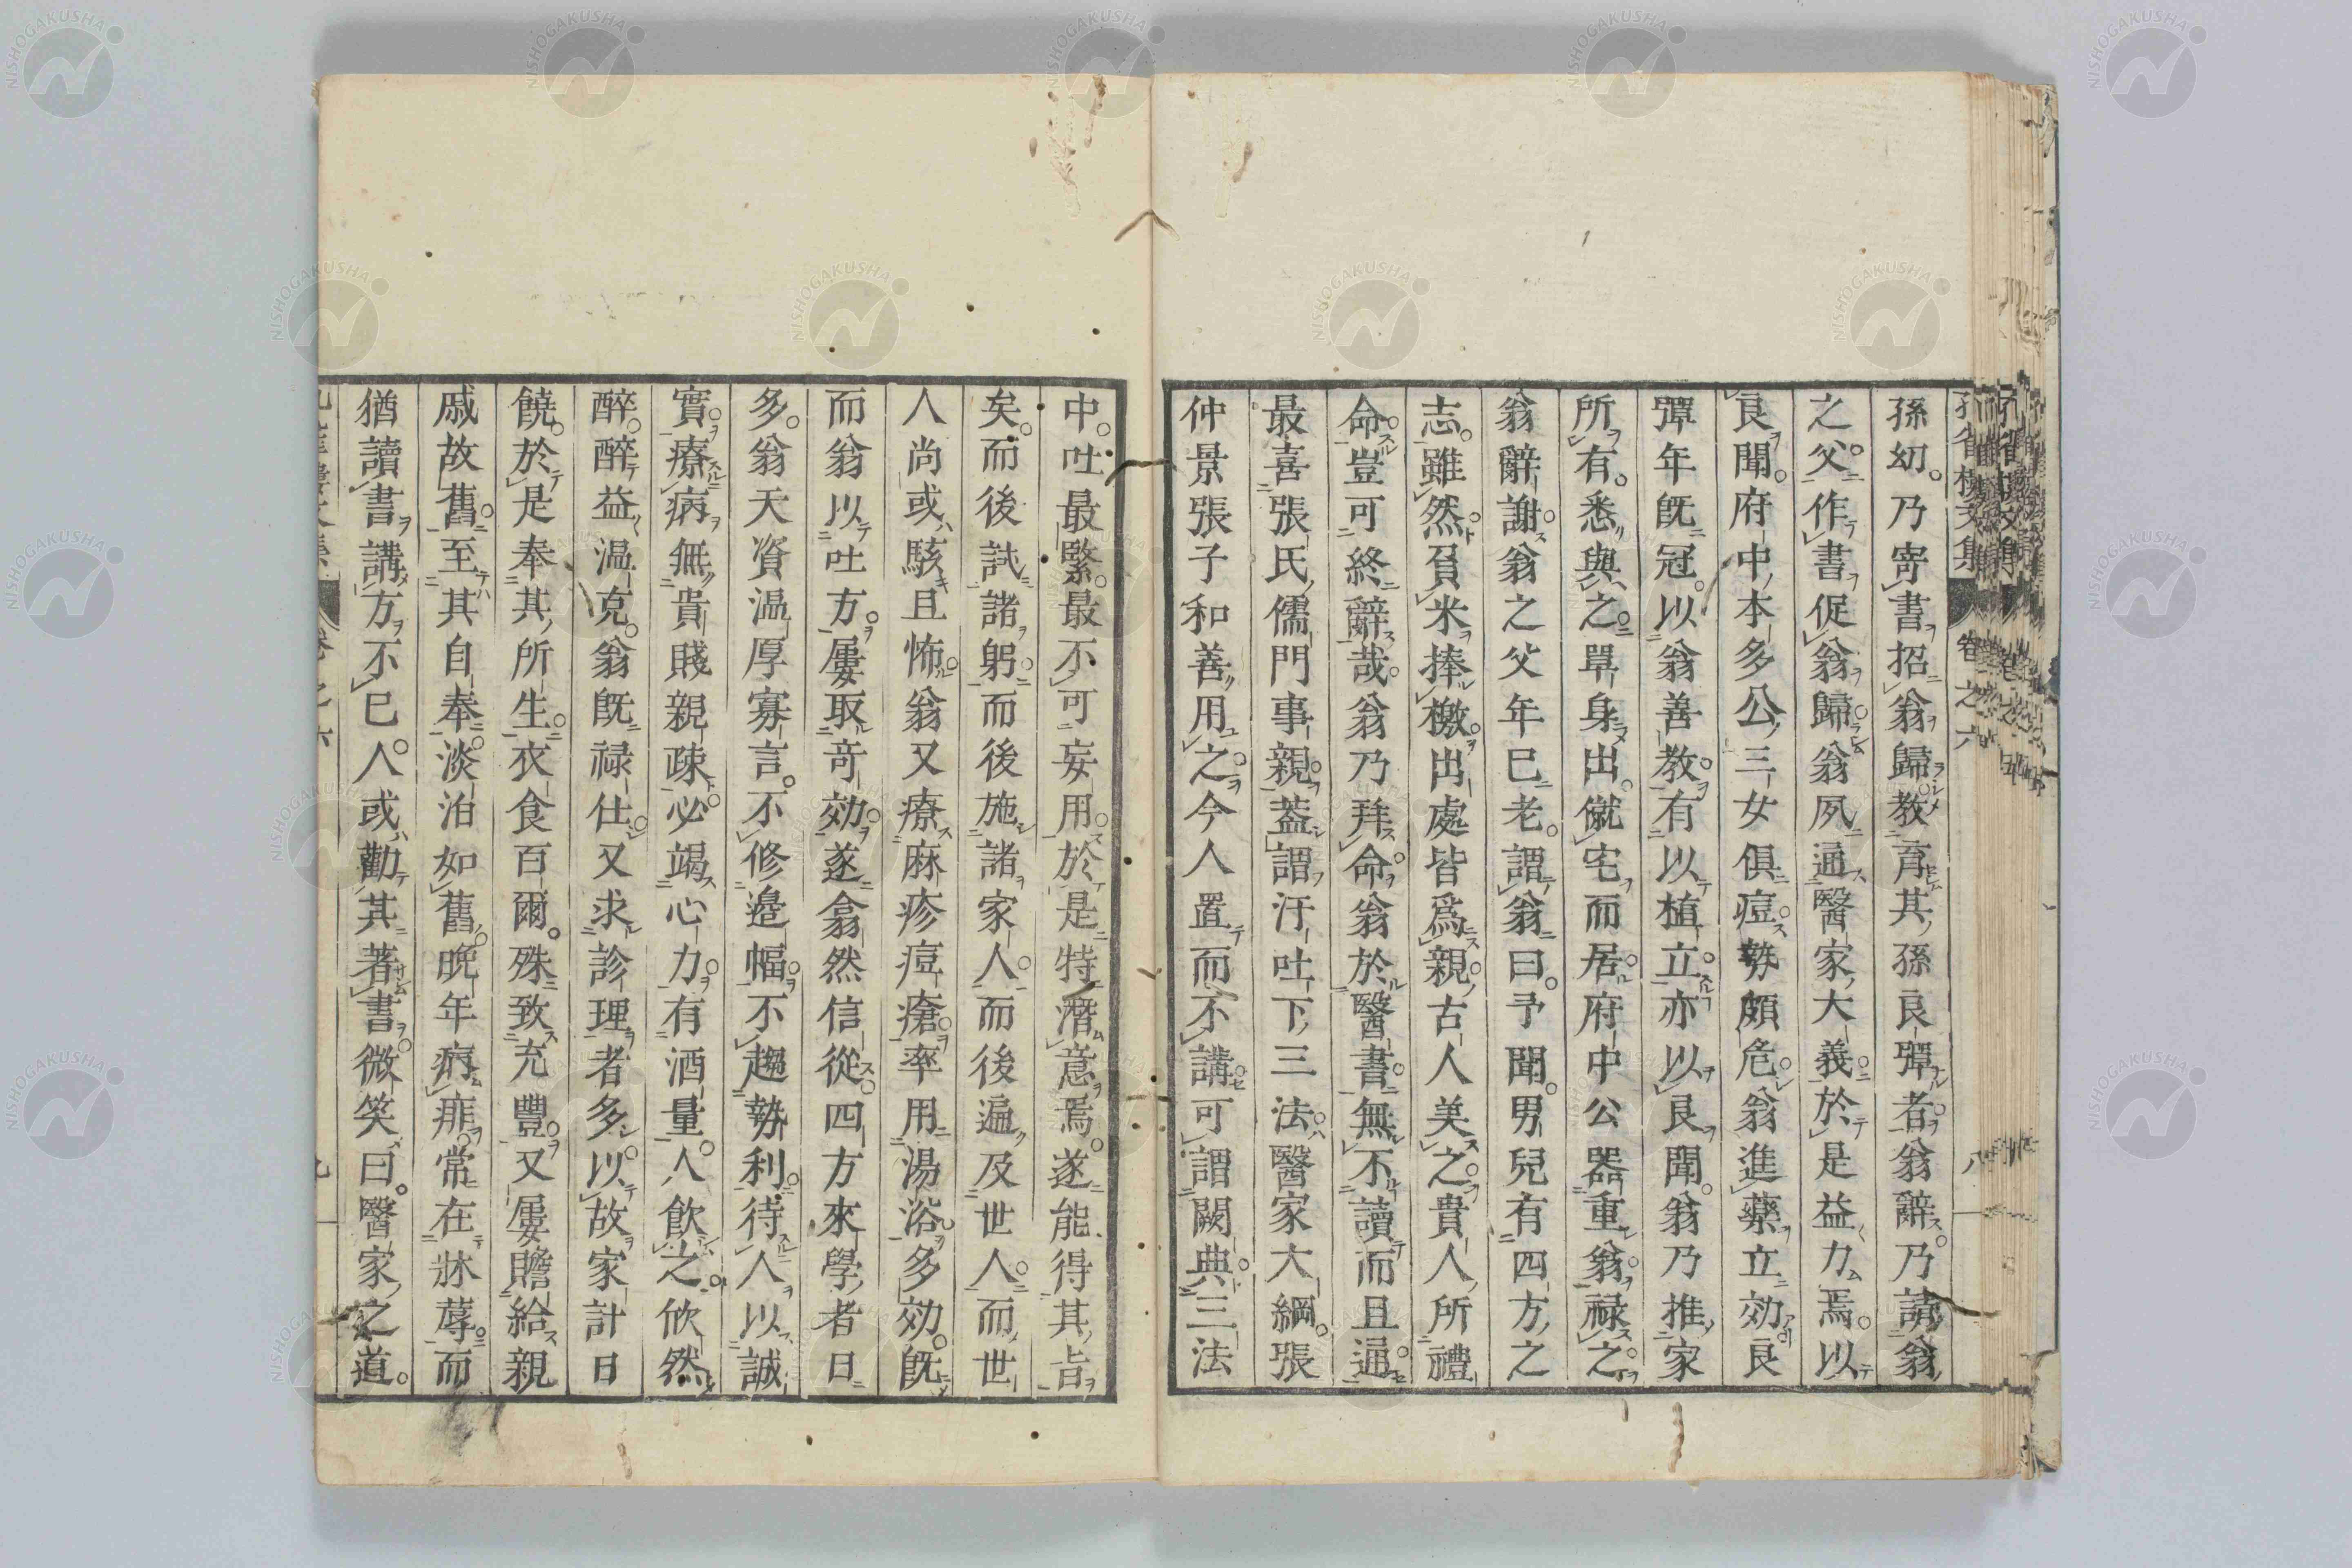 孫幼乃寄書招翁歸教育其孫良彈者翁辭乃請翁
之父作書促翁歸翁夙通醫家大義於是益力焉以
良聞府中本多公三女俱痘勢頗危翁進藥立効良
彈年既冠以翁善教有以植立亦以良聞翁乃推家
所有悉與之單身出僦宅而居府中公器重翁祿之
翁辭謝翁之父年已老謂翁曰予聞男兒有四方之
志雖然負米捧檄出處皆爲親古人美之貴人所禮
命豈可終辭哉翁乃拜命翁於醫書無不讀而且通
最喜張氏儒門事親蓋謂汗吐下三法醫家大綱張
仲景張子和善用之今人置而不講可謂闕典三法
中吐最緊最不可妄用於是特潛意焉遂能得其旨
矣而後試諸躬而後施諸家人而後遍及世人而世
人尚或駭且怖翁又療麻疹痘瘡率用湯浴多効既
而翁以吐方屢取奇効遂翕然信從四方來學者日
多翁天資温厚寡言不修邉幅不趨勢利待人以誠
實療病無貴賤親疎必竭心力有酒量人飲之欣然
醉醉益温克翁既祿仕又求診理者多以故家計日
饒於是奉其所生衣食百爾殊致充豐又屢贍給親
戚故舊至其自奉淡泊如舊晩年病痱常在牀蓐而
猶讀書講方不已人或勸其著書微笑曰醫家之道
卷之六
八